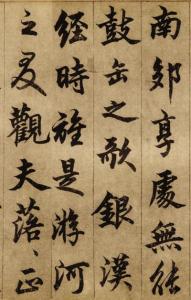 南郊享處無能
鼓缶之歌銀漢
經時雖是游河
之叟觀夫落〻正